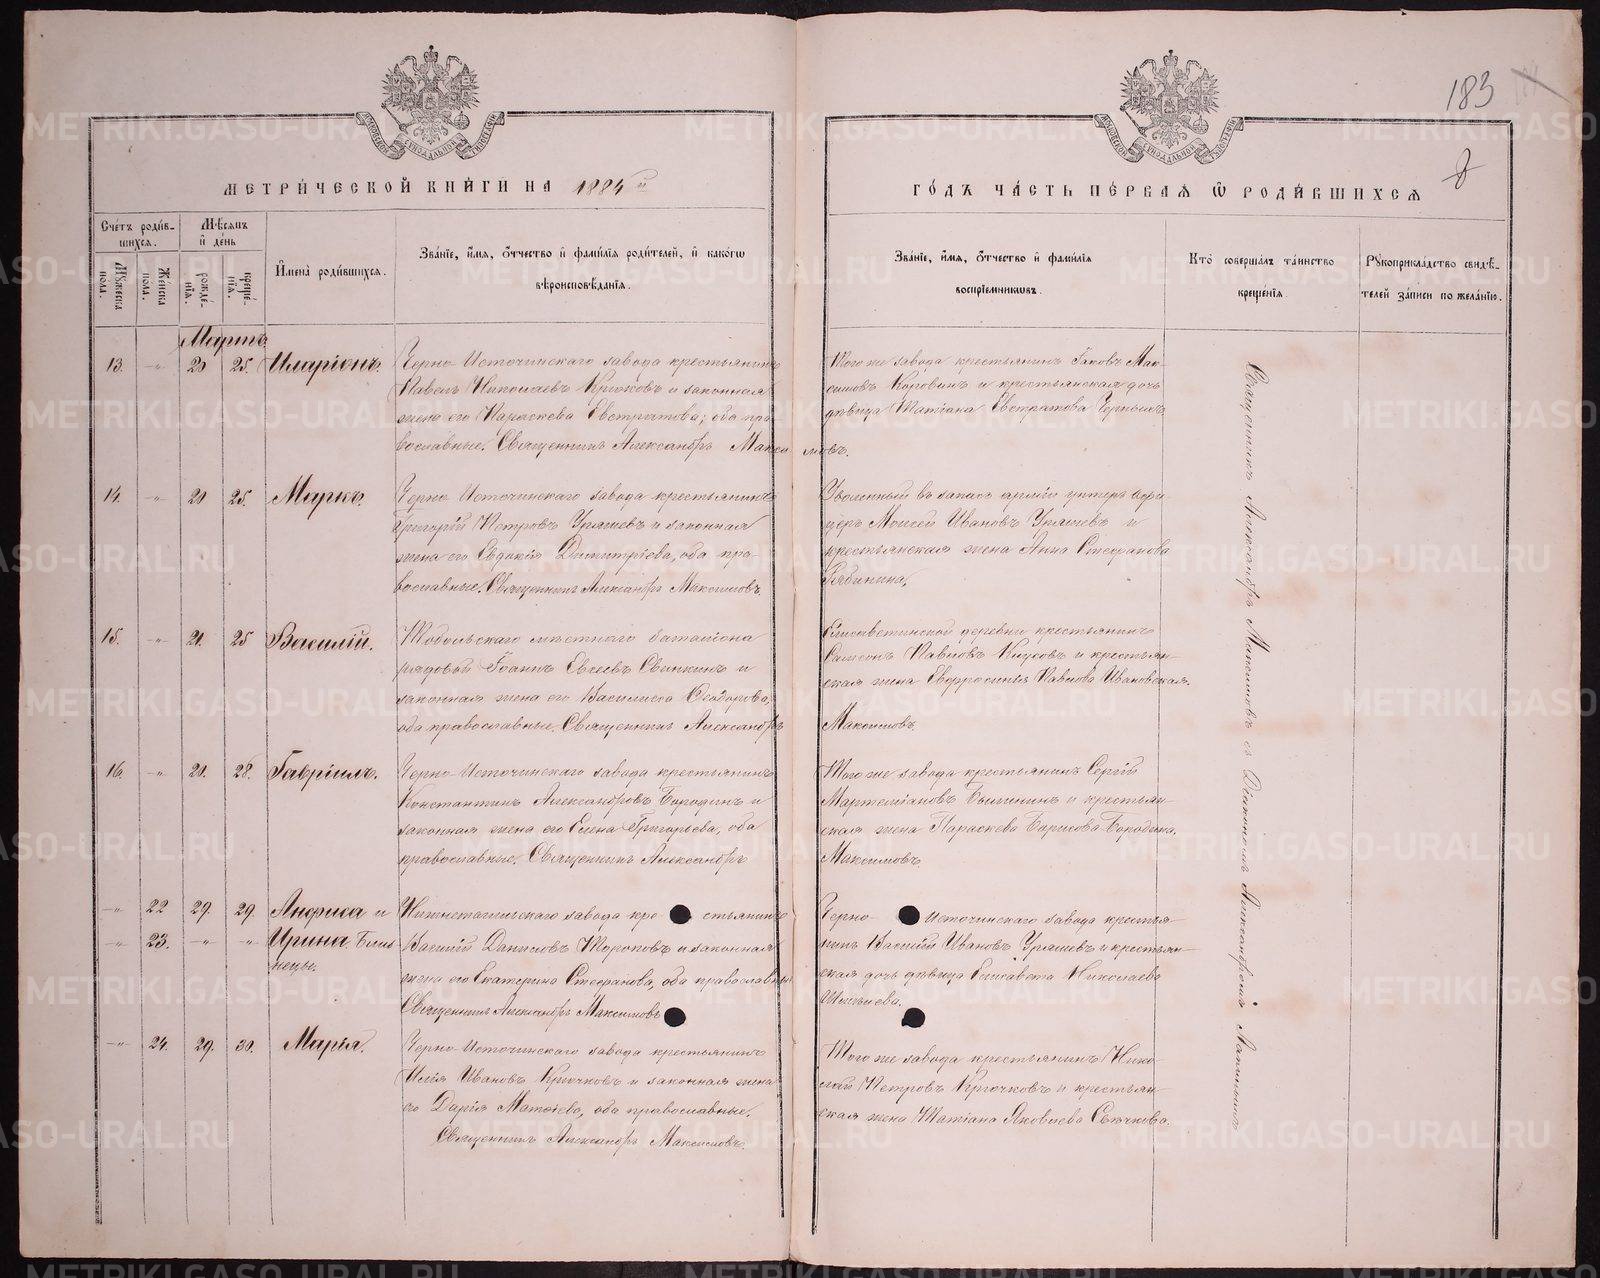 183
8
МЕТРИЧЕСКОЙ КНИГИ НА 1884й
ГОДЪ ЧАСТЬ ПЕРВАЯ Ѿ РОДИВШИХСЯ
Счетъ родившихся.
Мужеска пола.
Женска пола.
Мѣсяцъ и день
рожденія.
крещенія.
Имена родившихся.
Званіе, имя, ѻтчество и фамилія родителей, и какогѡ
вѣроисповѣданія.
Званіе, имя, ѻтчество и фамилія
воспріемниковъ.
Кто совершалъ таинство
крещенія.
Рукоприкладство свидѣ-
телей записи по желанію.
Мартъ
13. -"- 20 25. Иларіонъ.
Черно-Источинскаго завода крестьянинъ
Павелъ Николаевъ Крюковъ и законная
жена его Параскева Евстратова; оба пра-
вославные. Священникъ Александръ Максимовъ.
Того же завода крестьянинъ Іаковъ Мак-
симовъ Коровинъ и крестьянская дочь
дѣвица Татіана Евстратова Черныхъ
14. -"- 20 25. Маркъ.
Черно-Источинскаго завода крестьянинъ
Григорій Петровъ Уряшевъ и законная
жена его Евдокія Димитріева, оба пра-
вославные. Священникъ Александръ Максимовъ.
Уволенный въ запасъ арміи унтеръ офи-
церъ Моисей Ивановъ Уряшевъ и
крестьянская жена Анна Стефанова
Рябинина.
15. -"- 21. 25 Василій.
Тобольскаго мѣстнаго баталіона
рядовой Іоаннъ Евсеевъ Свинкинъ и
законная жена его Василиса Ѳеодорова,
оба православные. Священникъ Александръ
Максимовъ.
Елисаветинской деревни крестьянинъ
Самсонъ Павловъ Клусовъ и крестьян-
ская жена Евфросинія Павлова Ивановская.
16. -"- 21. 28. Гавріилъ.
Черно-Источинскаго завода крестьянинъ
Константинъ Александровъ Бородинъ и
законная жена его Елена Григорьева, оба
православные. Священникъ Александръ
Максимовъ.
Того же завода крестьянинъ Сергій
Мартеміановъ и крестьян-
ская жена Параскева Борисова Бородина.
-"- 22 29. 29. Анфиса и
-"- 23. -"- -"- Ирина близ
нецы.
Нижнетагильскаго завода кре- стьянинъ
Василій Даниловъ Тороповъ и законная
жена его Екатерина Стефанова, оба православные
Священникъ Александръ Максимовъ
Черно- Источинскаго завода крестья-
нинъ Василій Ивановъ Уряшевъ и крестьян-
ская дочь дѣвица Елисавета Николаева
-"- 24. 29. 30. Марія.
Черно-Источинскаго завода крестьянинъ
Илія Ивановъ Крючковъ и законная жена
его Дарія Матѳіева, оба православные.
Священникъ Александръ Максимовъ.
Того же завода крестьянинъ Нико-
лай Петровъ Крючковъ и крестьян-
ская жена Татіана Яковлева Сычкова.
Священникъ Александръ Максимовъ съ Діакономъ Александромъ
METRIKI.GASO-URAL.RU